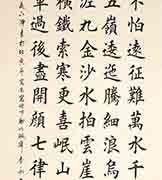 不怕遠征難萬水千
五嶺逶迤騰細浪烏
泥丸金沙水拍雲崖
橫鐵索寒更喜岷山
軍過後盡開顏七律